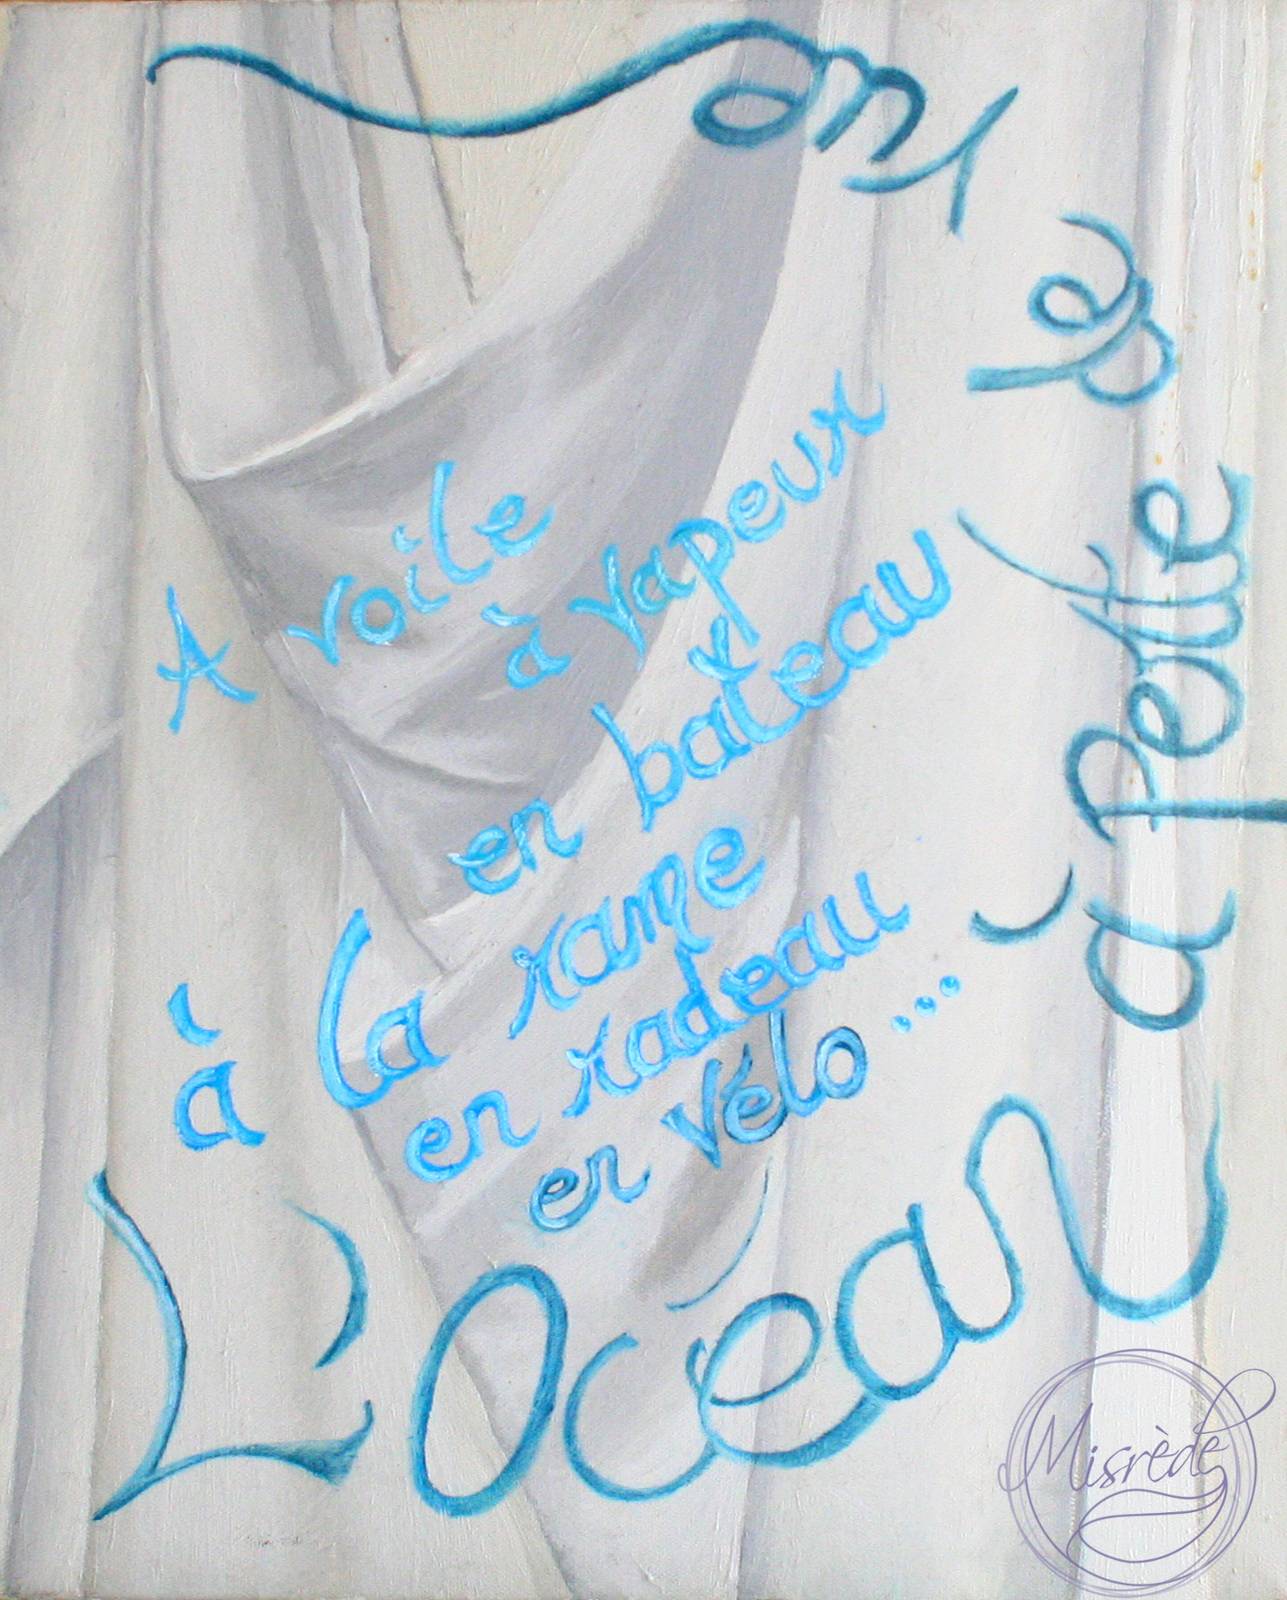 A voile
à vapeur
en bateau
à la rame
en radeau
en vélo...
L'Océan
à perte
de
vue
Misrède